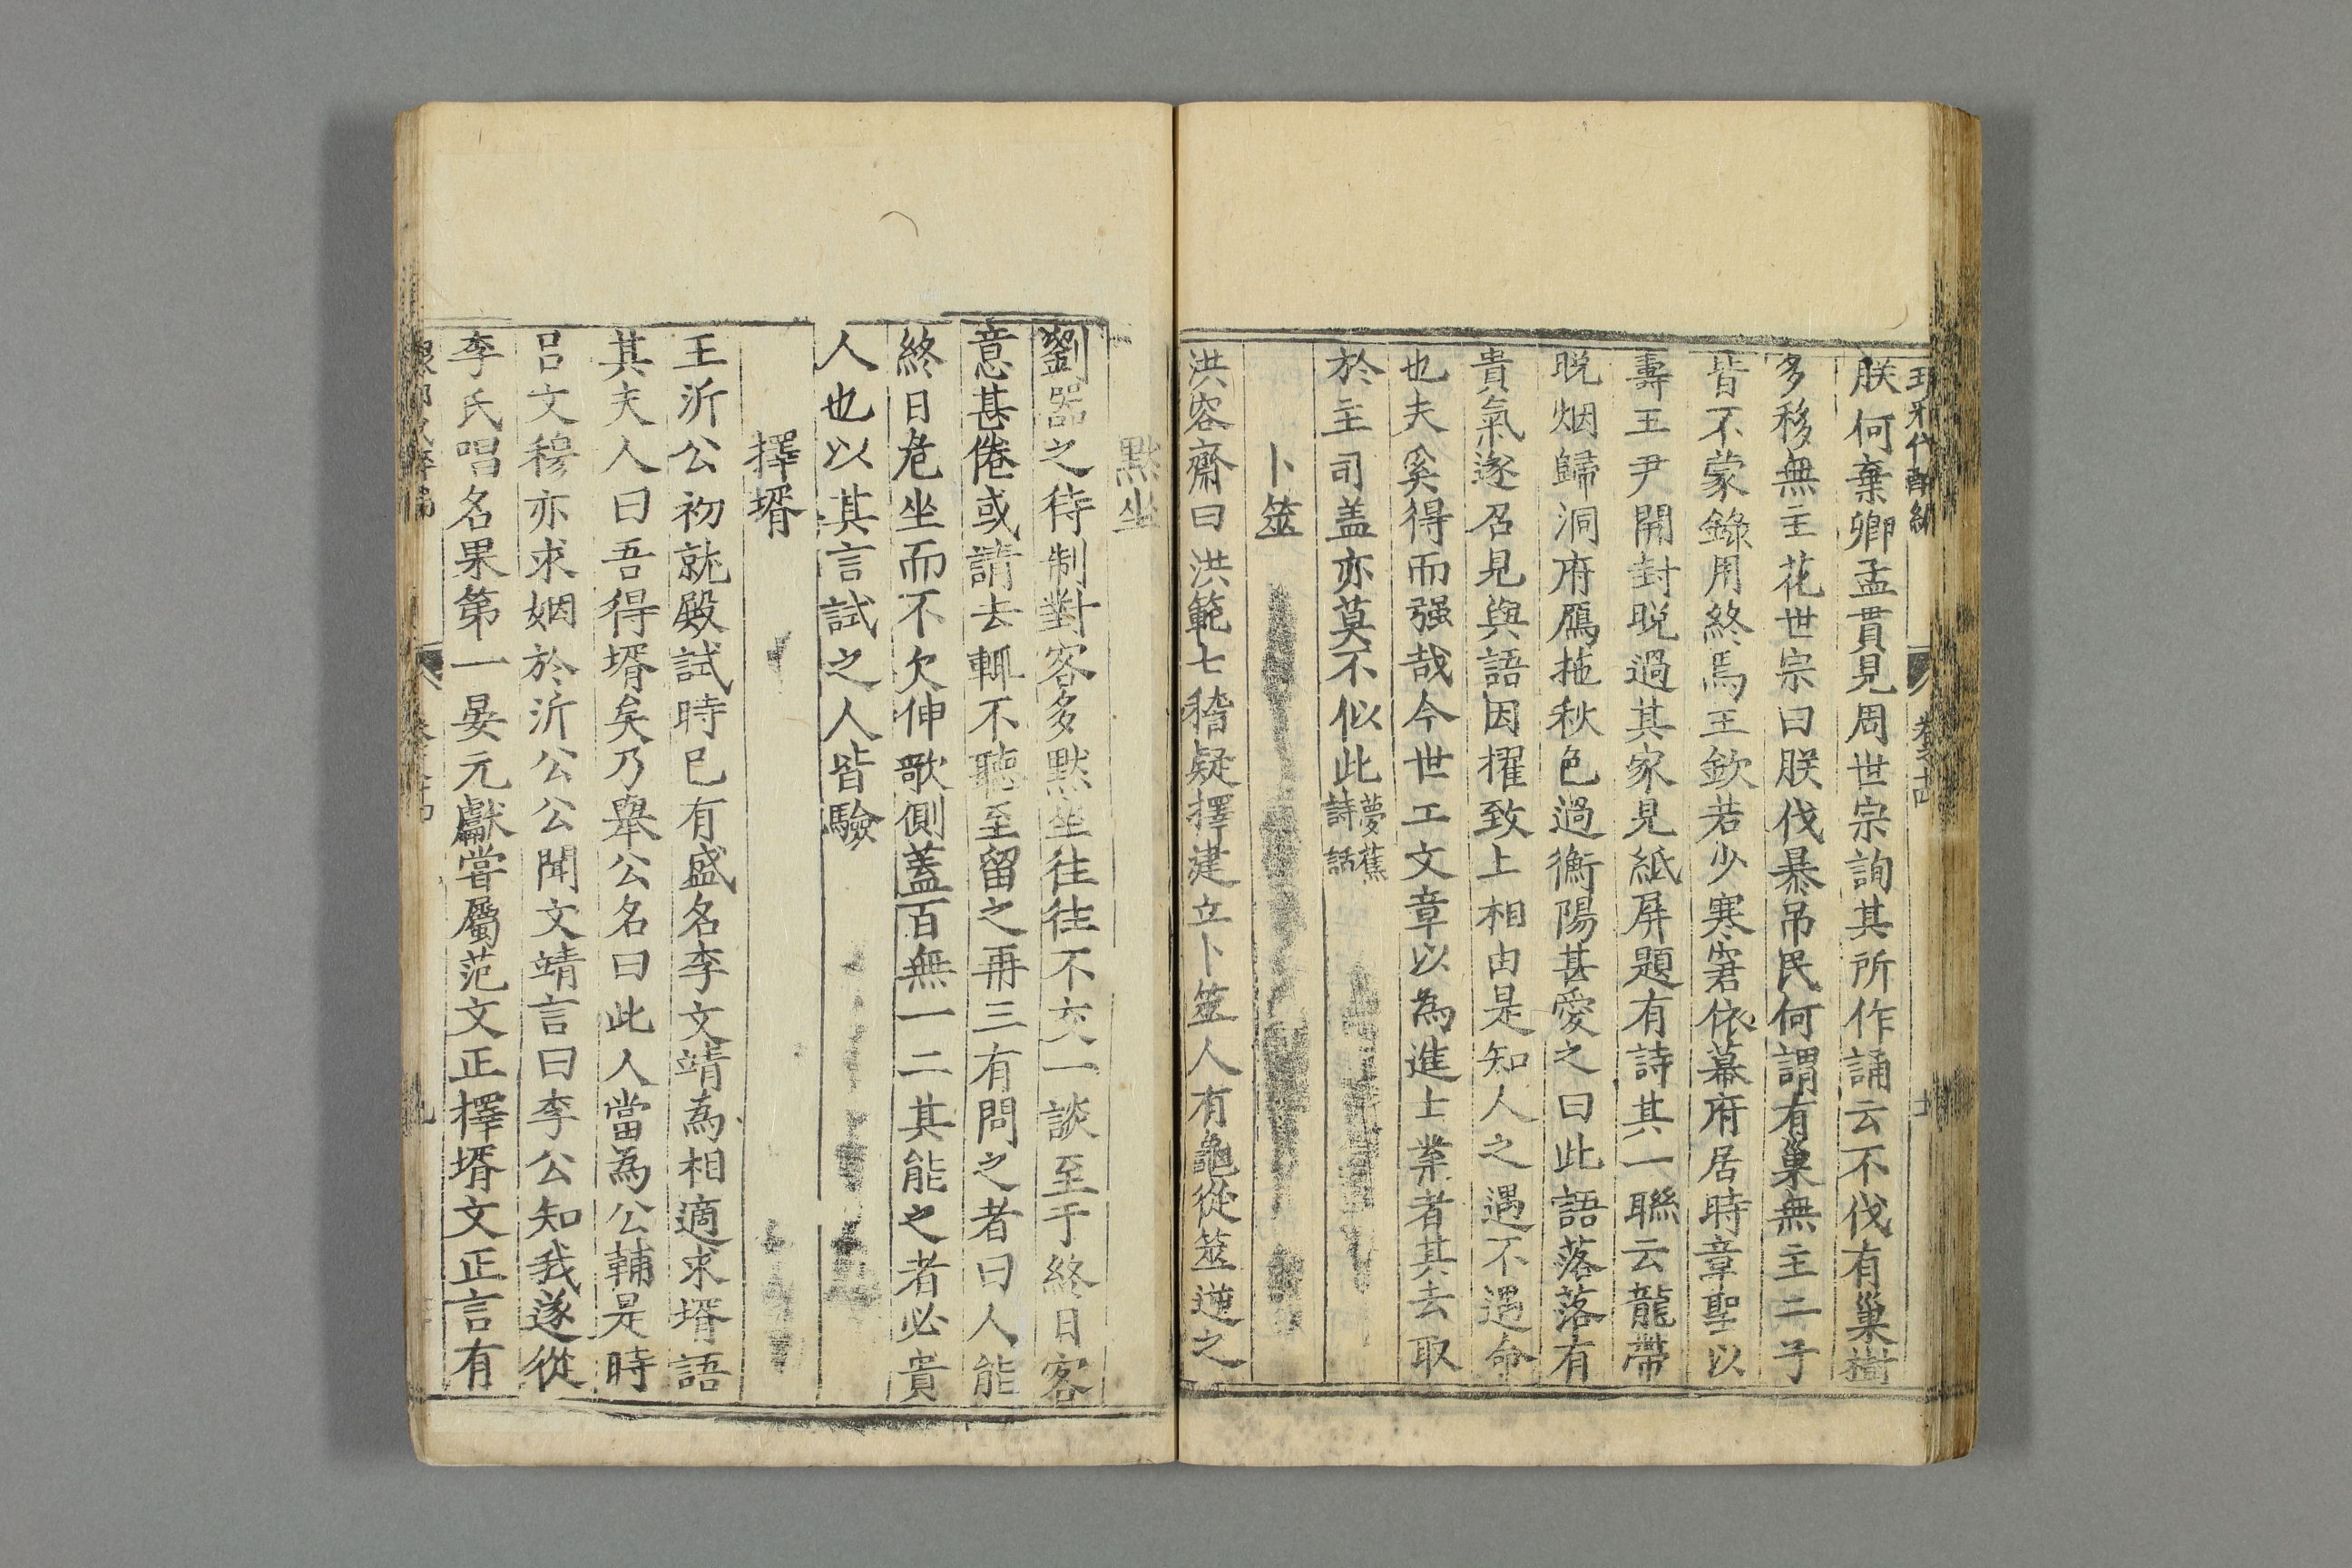 朕何棄卿孟貫見周世宗詢其所作誦云不伐有巢樹
多移無主花世宗曰朕伐暴吊民何謂有巢無主二子
皆不蒙錄用終焉王欽若少寒窘依幕府居時章聖以
壽王尹開封晚過其家見紙屏題有詩其一聯云龍帶
晚烟歸洞府鴈拖秋色過衡陽甚愛之曰此語落落有
貴氣遂召見與語因擢致上相由是知人之遇不遇命
也夫奚得而强哉今世工文章以為進士業者其去取
於主司盖亦莫不似此夢蕉詩話
卜筮
洪容齋曰洪範七稽疑擇建立卜筮人有龜從筮逆之
默坐
劉器之待制對客多默坐往往不交一談至于終日客
意甚倦或請去輒不聽至留之再三有問之者曰人能
終日危坐而不欠伸欹側蓋百無一二其能之者必貴
人也以其言試之人皆驗
擇壻
王沂公初就殿試時已有盛名李文靖為相適求壻語
其夫人曰吾得壻矣乃舉公名曰此人當為公輔是時
呂文穆亦求姻於沂公公聞文靖言曰李公知我遂從
李氏唱名果第一晏元獻嘗屬范文正擇壻文正言有